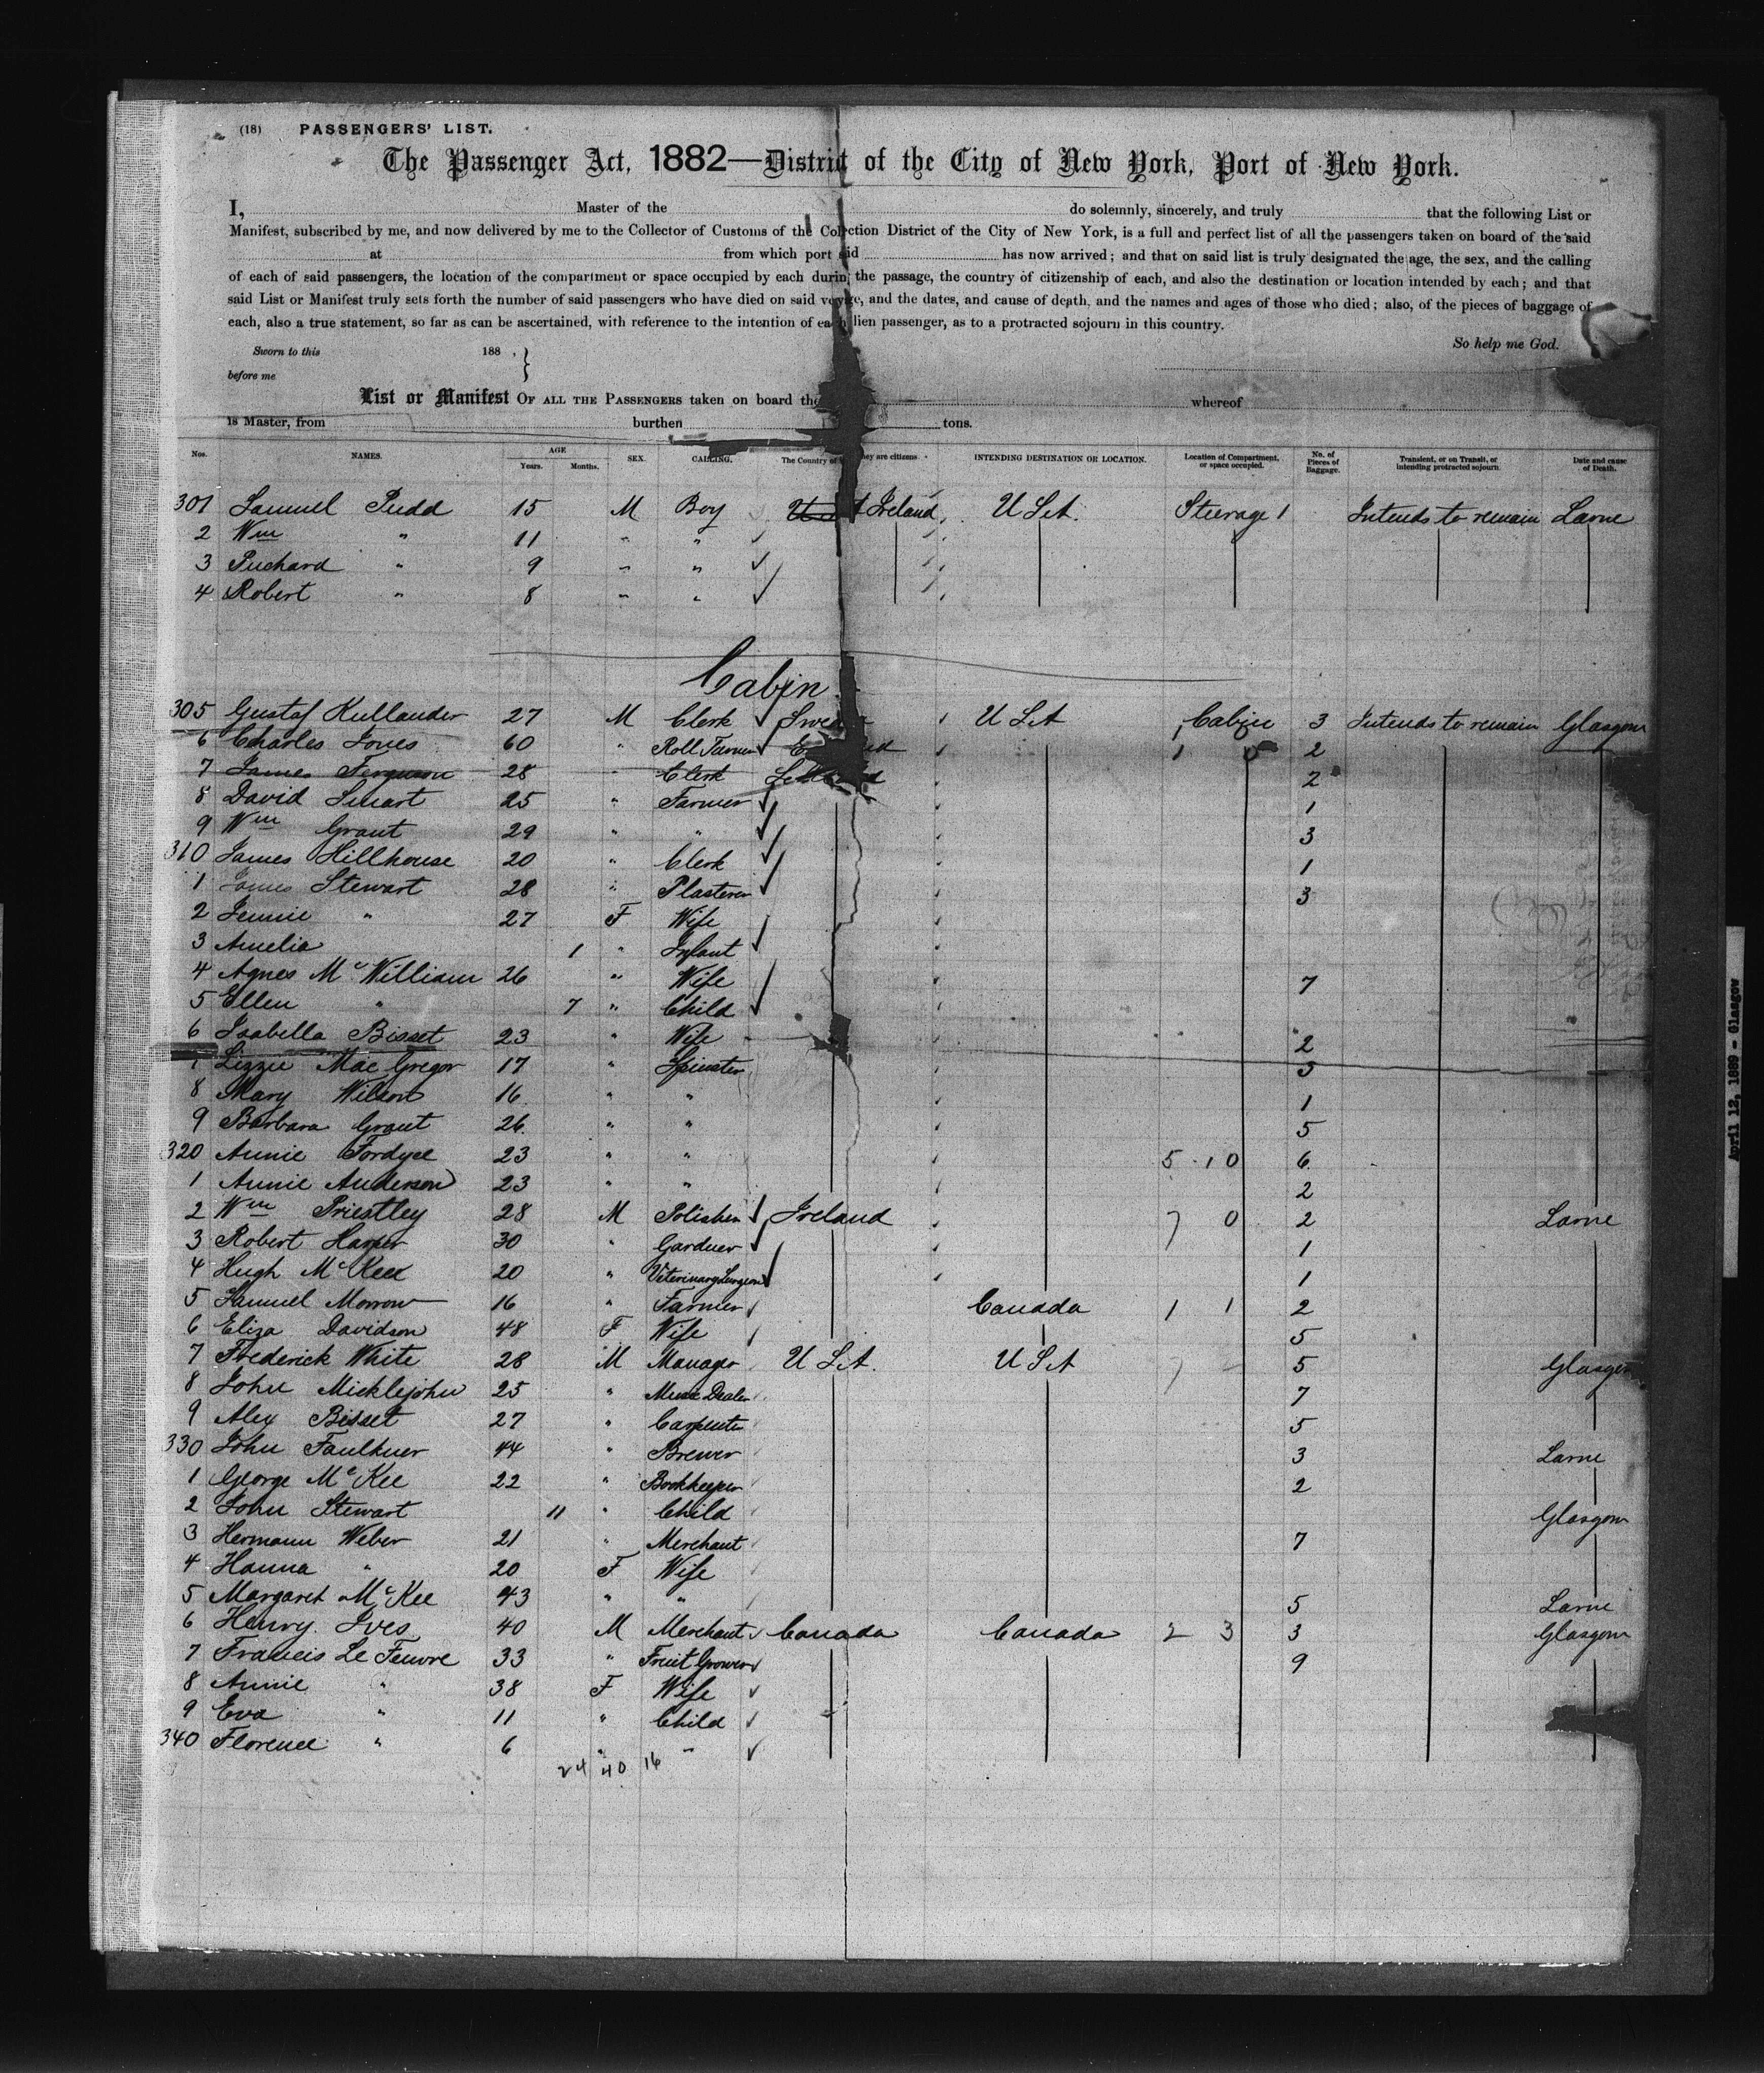 (18) PASSENGERS' LIST.
The Passenger Act, 1882—District of the City of New York, Port of New York.
I, Master of the do solemnly, sincerely, and truly that the following List or
Manifest, subscribed by me, and now delivered by me to the Collector of Customs of the Collection District of the City of New York, is a full and perfect list of all the passengers taken on board of the said
at from which port said has now arrived; and that on said list is truly designated the age, the sex, and the calling
of each of said passengers, the location of the compartment or space occupied by each during the passage, the country of citizenship of each, and also the destination or location intended by each; and that
said List or Manifest truly sets forth the number of said passengers who have died on said voyage, and the dates, and cause of death, and the names and ages of those who died; also, of the pieces of baggage of
each, also a true statement, so far as can be ascertained, with reference to the intention of each alien passenger, as to a protracted sojourn in this country.
Sworn to this 188 , } So help me God.
before me
List or Manifest OF ALL THE PASSENGERS taken on board the whereof
is Master, from burthen tons.
Nos. NAMES. AGE Years. Months. SEX. CALLING. The Country of they are citizens. INTENDING DESTINATION OR LOCATION. Location of Compartment, or space occupied. No. of Pieces of Baggage. Transient, or on Transit, or intending protracted sojourn. Date and cause of Death.
301 Samuel Pudd 15 M Boy Ireland U S A. Steerage 1 Intends to remain Larne
2 Wm " 11 " "
3 Richard " 9 " "
4 Robert " 8 " "
Cabin
305 Gustaf Kullander 27 M Clerk Sweden U S A Cabin 3 Intends to remain Glasgow
6 Charles Jones 60 " Roll Turner England 1 2
7 James Ferguson 28 " Clerk Scotland 2
8 David Smart 25 " Farmer 1
9 Wm Grant 29 " " 3
310 James Hillhouse 20 " Clerk 1
1 James Stewart 28 " Plasterer 3
2 Jennie " 27 F Wife
3 Amelia 1 " Infant
4 Agnes McWilliam 26 " Wife 7
5 Ellen " 7 " Child
6 Isabella Bisset 23 " Wife 2
7 Lizzie MacGregor 17 " Spinster 3
8 Mary Wilson 16 " " 1
9 Barbara Grant 26 " " 5
320 Annie Fordyce 23 " " 5 10 6
1 Annie Anderson 23 " " 2
2 Wm Priestley 28 M Polisher Ireland 7 0 2 Larne
3 Robert Harper 30 " Gardner 1
4 Hugh McKee 20 " Veterinary Surgeon 1
5 Samuel Morrow 16 " Farmer Canada 1 1 2
6 Eliza Davidson 48 F Wife 5
7 Frederick White 28 M Manager U S A. U S A 5 Glasgow
8 John Micklejohn 25 " Music Dealer 7
9 Alex Bisset 27 " Carpenter 5
330 John Faulkner 44 " Brewer 3 Larne
1 George McKee 22 " Bookkeeper 2
2 John Stewart 11 " Child Glasgow
3 Hermann Weber 21 " Merchant 7
4 Hanna " 20 F Wife
5 Margaret McKee 43 " " 5 Larne
6 Henry Ives 40 M Merchant Canada Canada 2 3 3 Glasgow
7 Francis Le Feuvre 33 " Fruit Grower 9
8 Annie " 38 F Wife
9 Eva " 11 " Child
340 Florence " 6 " "
24 40 16
April 12, 1889 - Glasgow